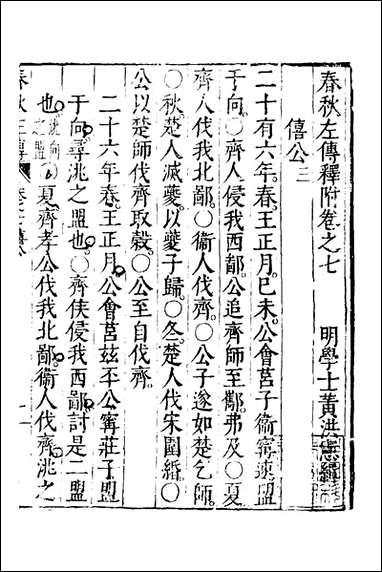 春秋左傳釋附卷之七　明學士黃洪憲輯
僖公三
二十有六年。春。王正月。己未。公會莒子衞甯速盟
于向。○齊人侵我西鄙。公追齊師至酅。弗及○夏
齊人伐我北鄙。○衞人伐齊。○公子遂如楚乞師。
○秋。楚人滅夔。以夔子歸。○冬。楚人伐宋圍緡。○
公以楚師伐齊取穀。○公至自伐齊
二十六年春。王正月。公會莒茲丕公甯莊子盟
于向。尋洮之盟也。○齊侯侵我西鄙。討是二盟
也。洮向之盟○夏。齊孝公伐我北鄙。衞人伐齊。洮之